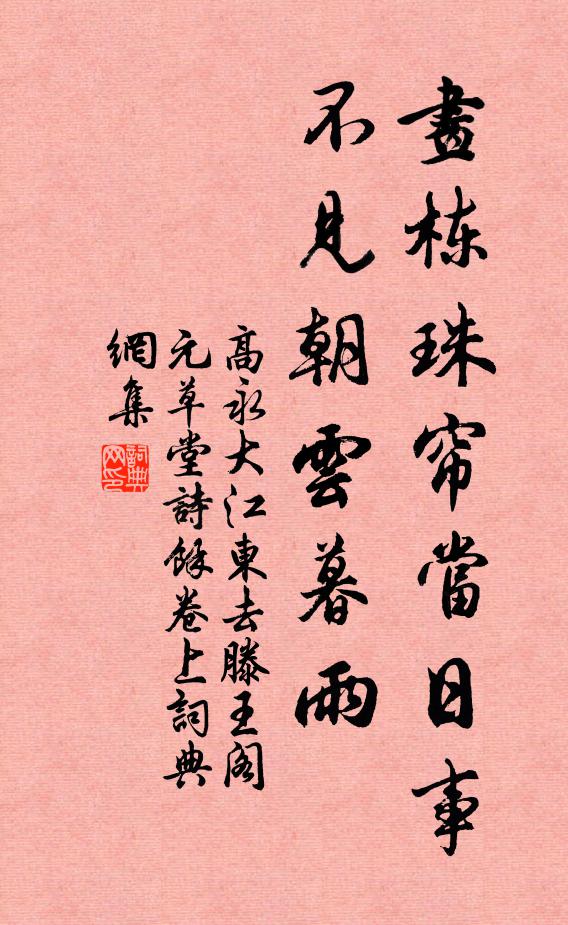 畫棟珠帘當日事
不見朝雲暮雨
高永大江東去滕王阁
元草堂詩餘卷上詞典
網集
詞典網印